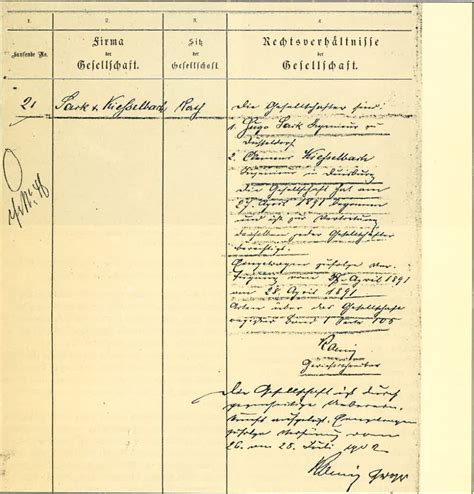 1. 2. 3. 4.
Laufende No. Firma der Gesellschaft. Sitz der Gesellschaft. Rechtsverhältnisse der Gesellschaft.
21 Sack & Kiesselbach Rath Die Gesellschafter sind:
1. Hugo Sack Ingenieur zu
Düsseldorf
2. Clemens Kiesselbach
Ingenieur in Duisburg
Die Gesellschaft hat am
27. April 1891 begonnen
und ist zur Vertretung
derselben jeder Gesellschafter
berechtigt.
Eingetragen zufolge Ver-
fügung vom April 1891
am 28. April 1891
Akten über das Gesellschafts
register Band 1 Seite 105
Gerichtsschreiber
Die Gesellschaft ist durch
gegenseitige Ueberein-
kunft aufgelöst. Eingetragen
zufolge Verfügung vom
26. am 28. Juli 1902